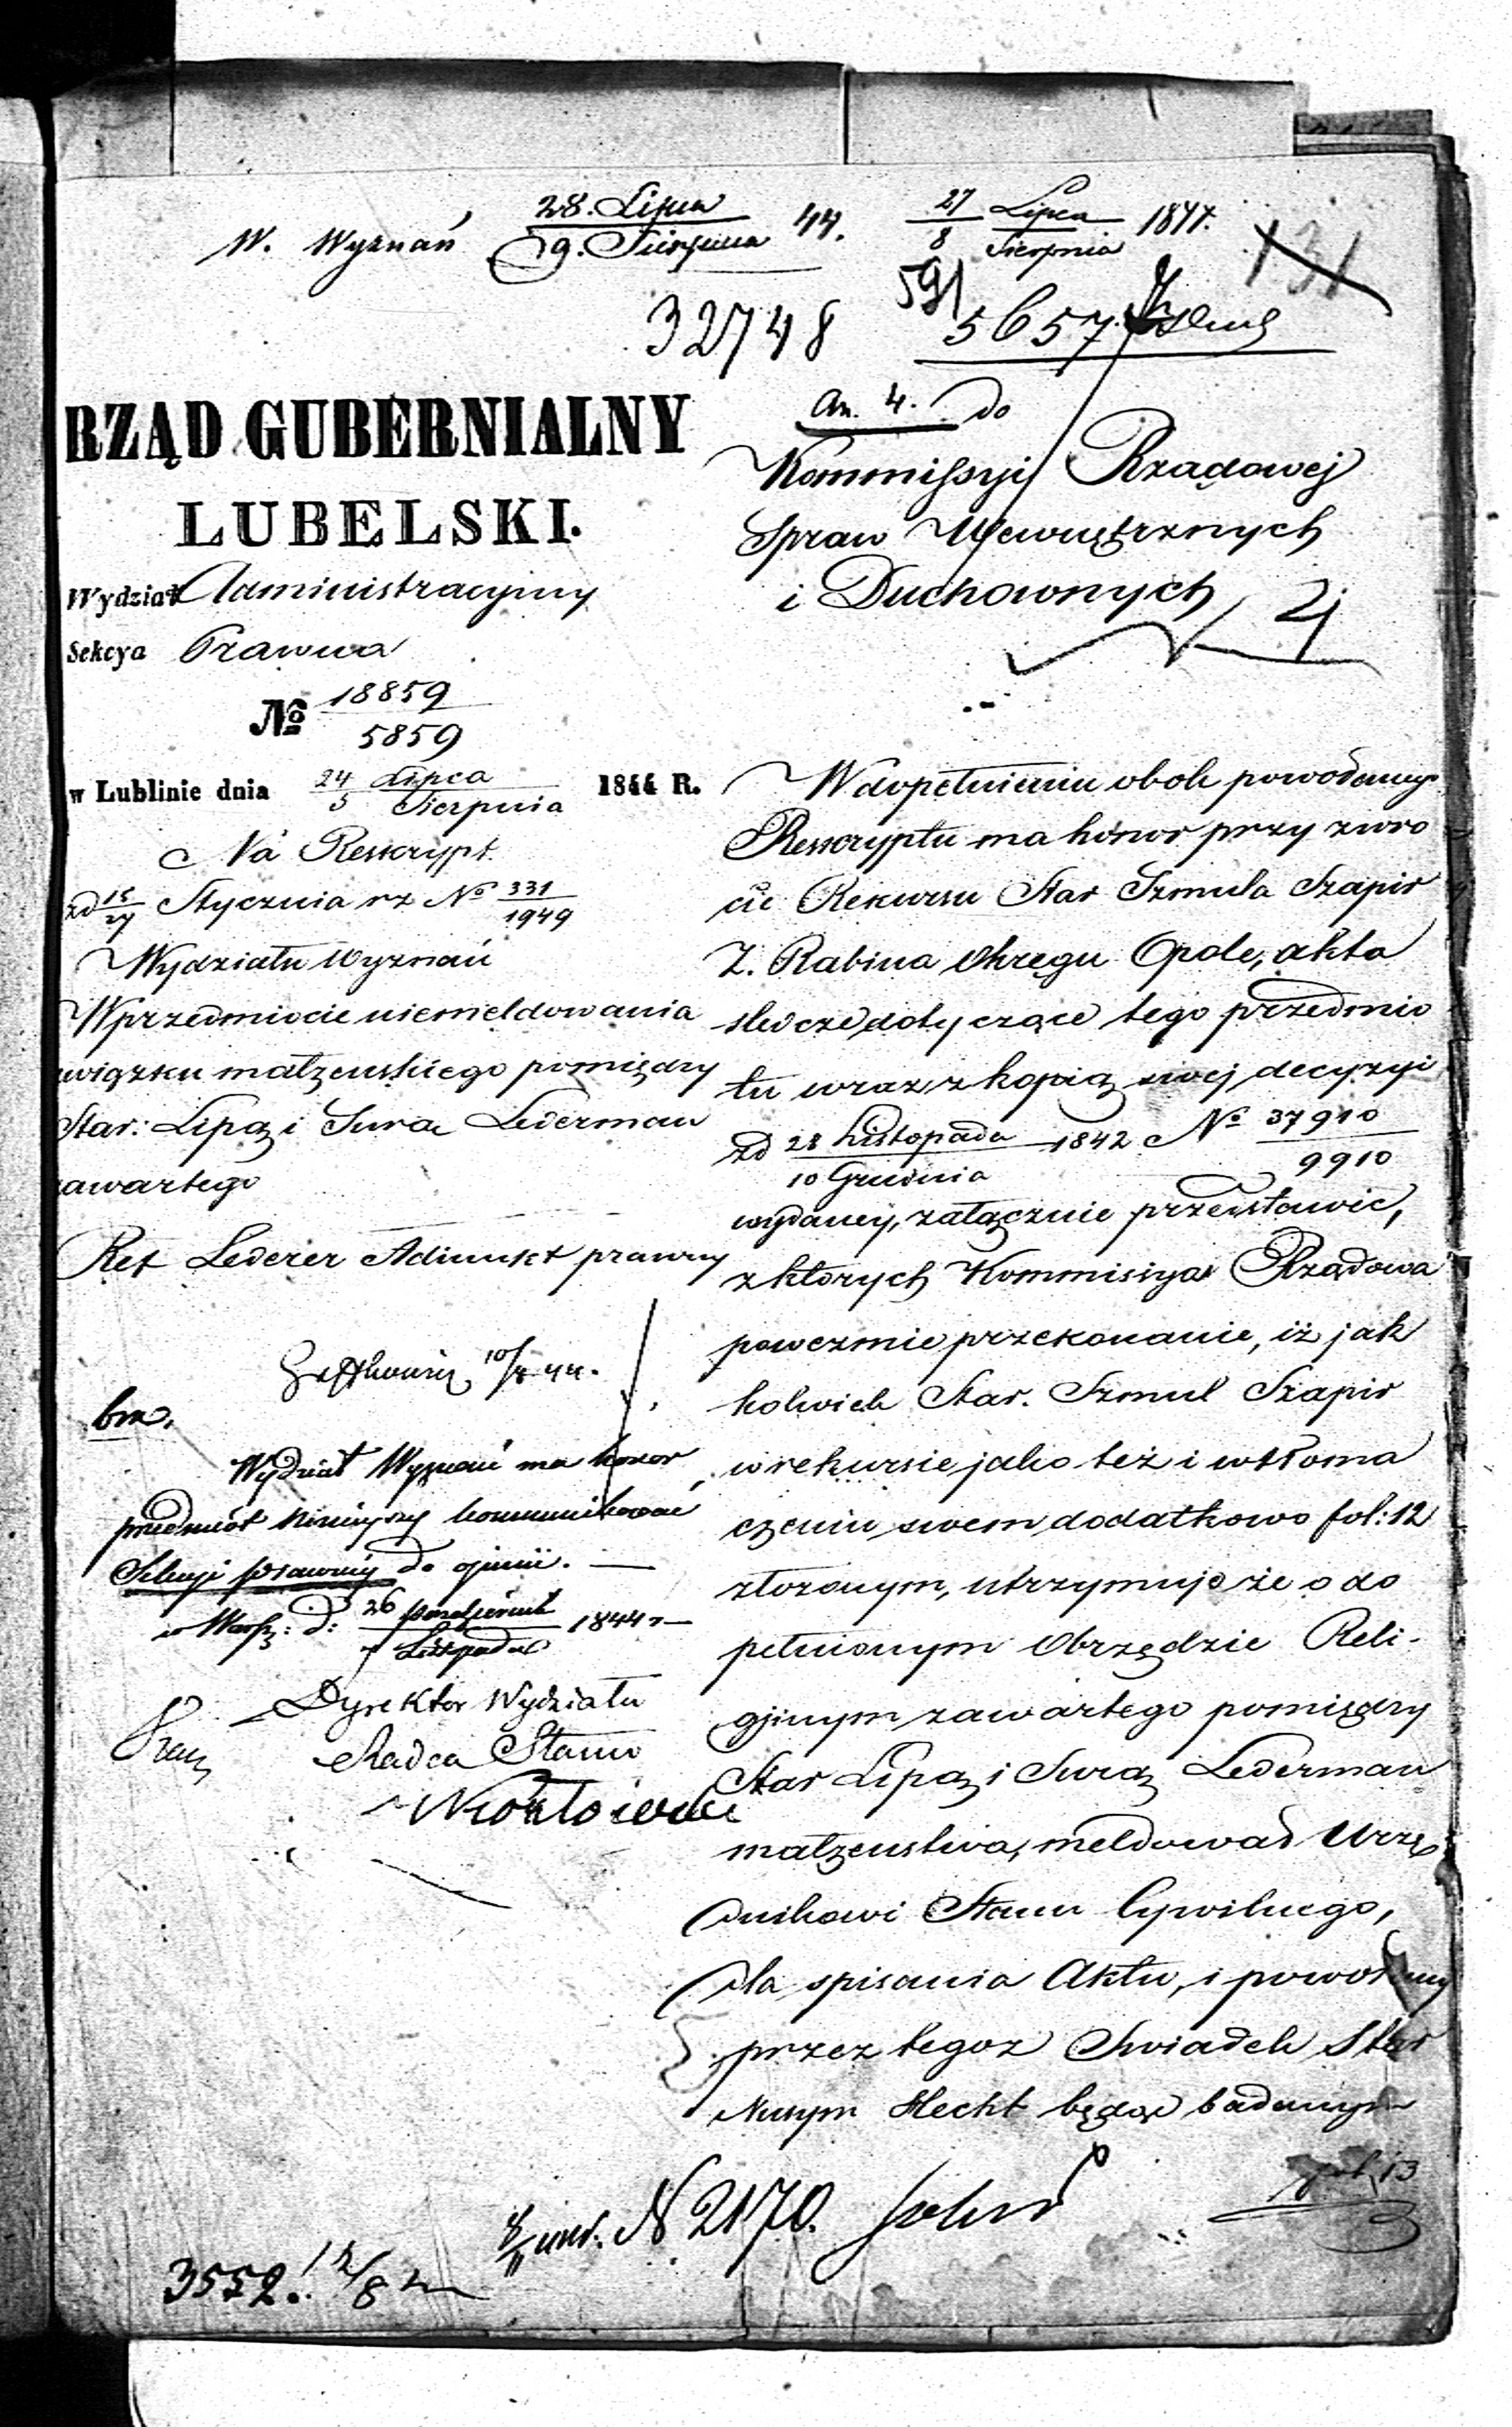 W. Wyznań 28. Lipca 44.
9. Sierpnia
27 Lipca 1844.
8 Sierpnia
131
32748
591
5657
an. 4. do
Kommissyi Rządowej
Spraw Wewnętrznych
i Duchownych
RZĄD GUBERNIALNY
LUBELSKI.
Wydział Administracyjny
Sekcya Prawna
No 18859
5859
w Lublinie dnia 24 Lipca 1844 R.
5 Sierpnia
Na Resskrypt
zd 15 Stycznia rz No 331
27 1949
Wydziału Wyznań
W przedmiocie niemeldowania
związku małżeńskiego pomiędzy
Star: Lipą i Surą Lederman
zawartego
Ref Lederer Adiunkt prawny
10/8 44.
bm.
Wydział Wyznań ma honor
przedmiot niniejszy kommunikować
Sekcyi prawnéj do opinii. —
w Warsz: d: 26 Października 1844 r —
7 Listopada
Dyrektor Wydziału
Radca Stanu
W dopełnieniu obok powołanego
Resskryptu ma honor przy zwro
cie Rekursu Star Szmula Szapir
Z. Rabina Okręgu Opole, akta
śledcze dotyczące tego przedmio
tu wraz z kopią swej decyzyi
zd 28 Listopada 1842 No 37910
10 Grudnia 9910
wydanej, załącznie przedstawić,
z których Kommissya Rządowa
poweźmie przekonanie, iż jak
kolwiek Star. Szmul Szapir
w rekursie jako też i w tłoma
czeniu swem dodatkowo fol: 12
złożonym, utrzymuje że o do
pełnionym Obrzędzie Reli-
gijnym zawartego pomiędzy
Star Lipą i Surą Lederman
małżeństwa, meldował Urzę
dnikowi Stanu Cywilnego,
dla spisania Aktu, i powołany
przez tegoż Świadek Star
Nusym Hecht będąc badanym
fol. 13
No 2170.
3552. 12/8